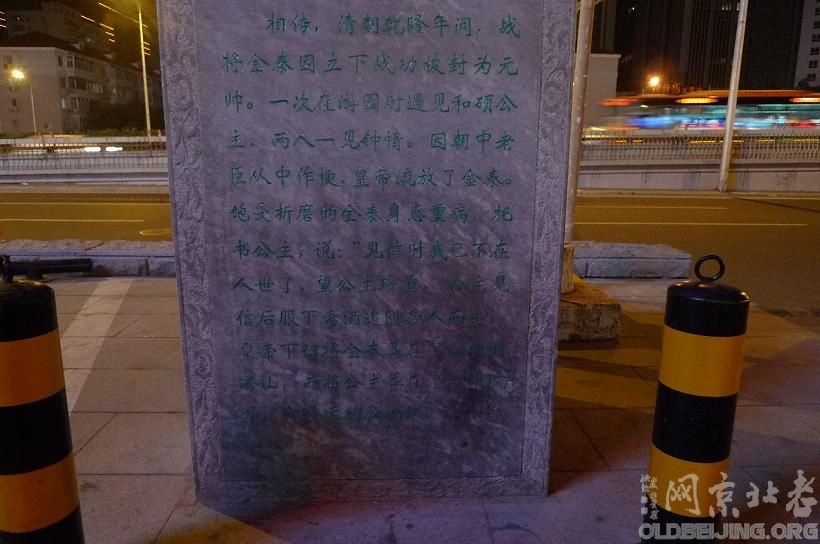 相传，清朝乾隆年间，战
将金泰因立下战功被封为元
帅。一次在游园时遇见和硕公
主，两人一见钟情。因朝中老
臣从中作梗，皇帝流放了金泰。
饱受折磨的金泰身患重病，托
书公主，说：“见信时我已不在
人世了，望公主珍重。公主见
信后服下毒酒追随
皇帝下
山，而将公主
老北京网
OLDBEIJING.ORG